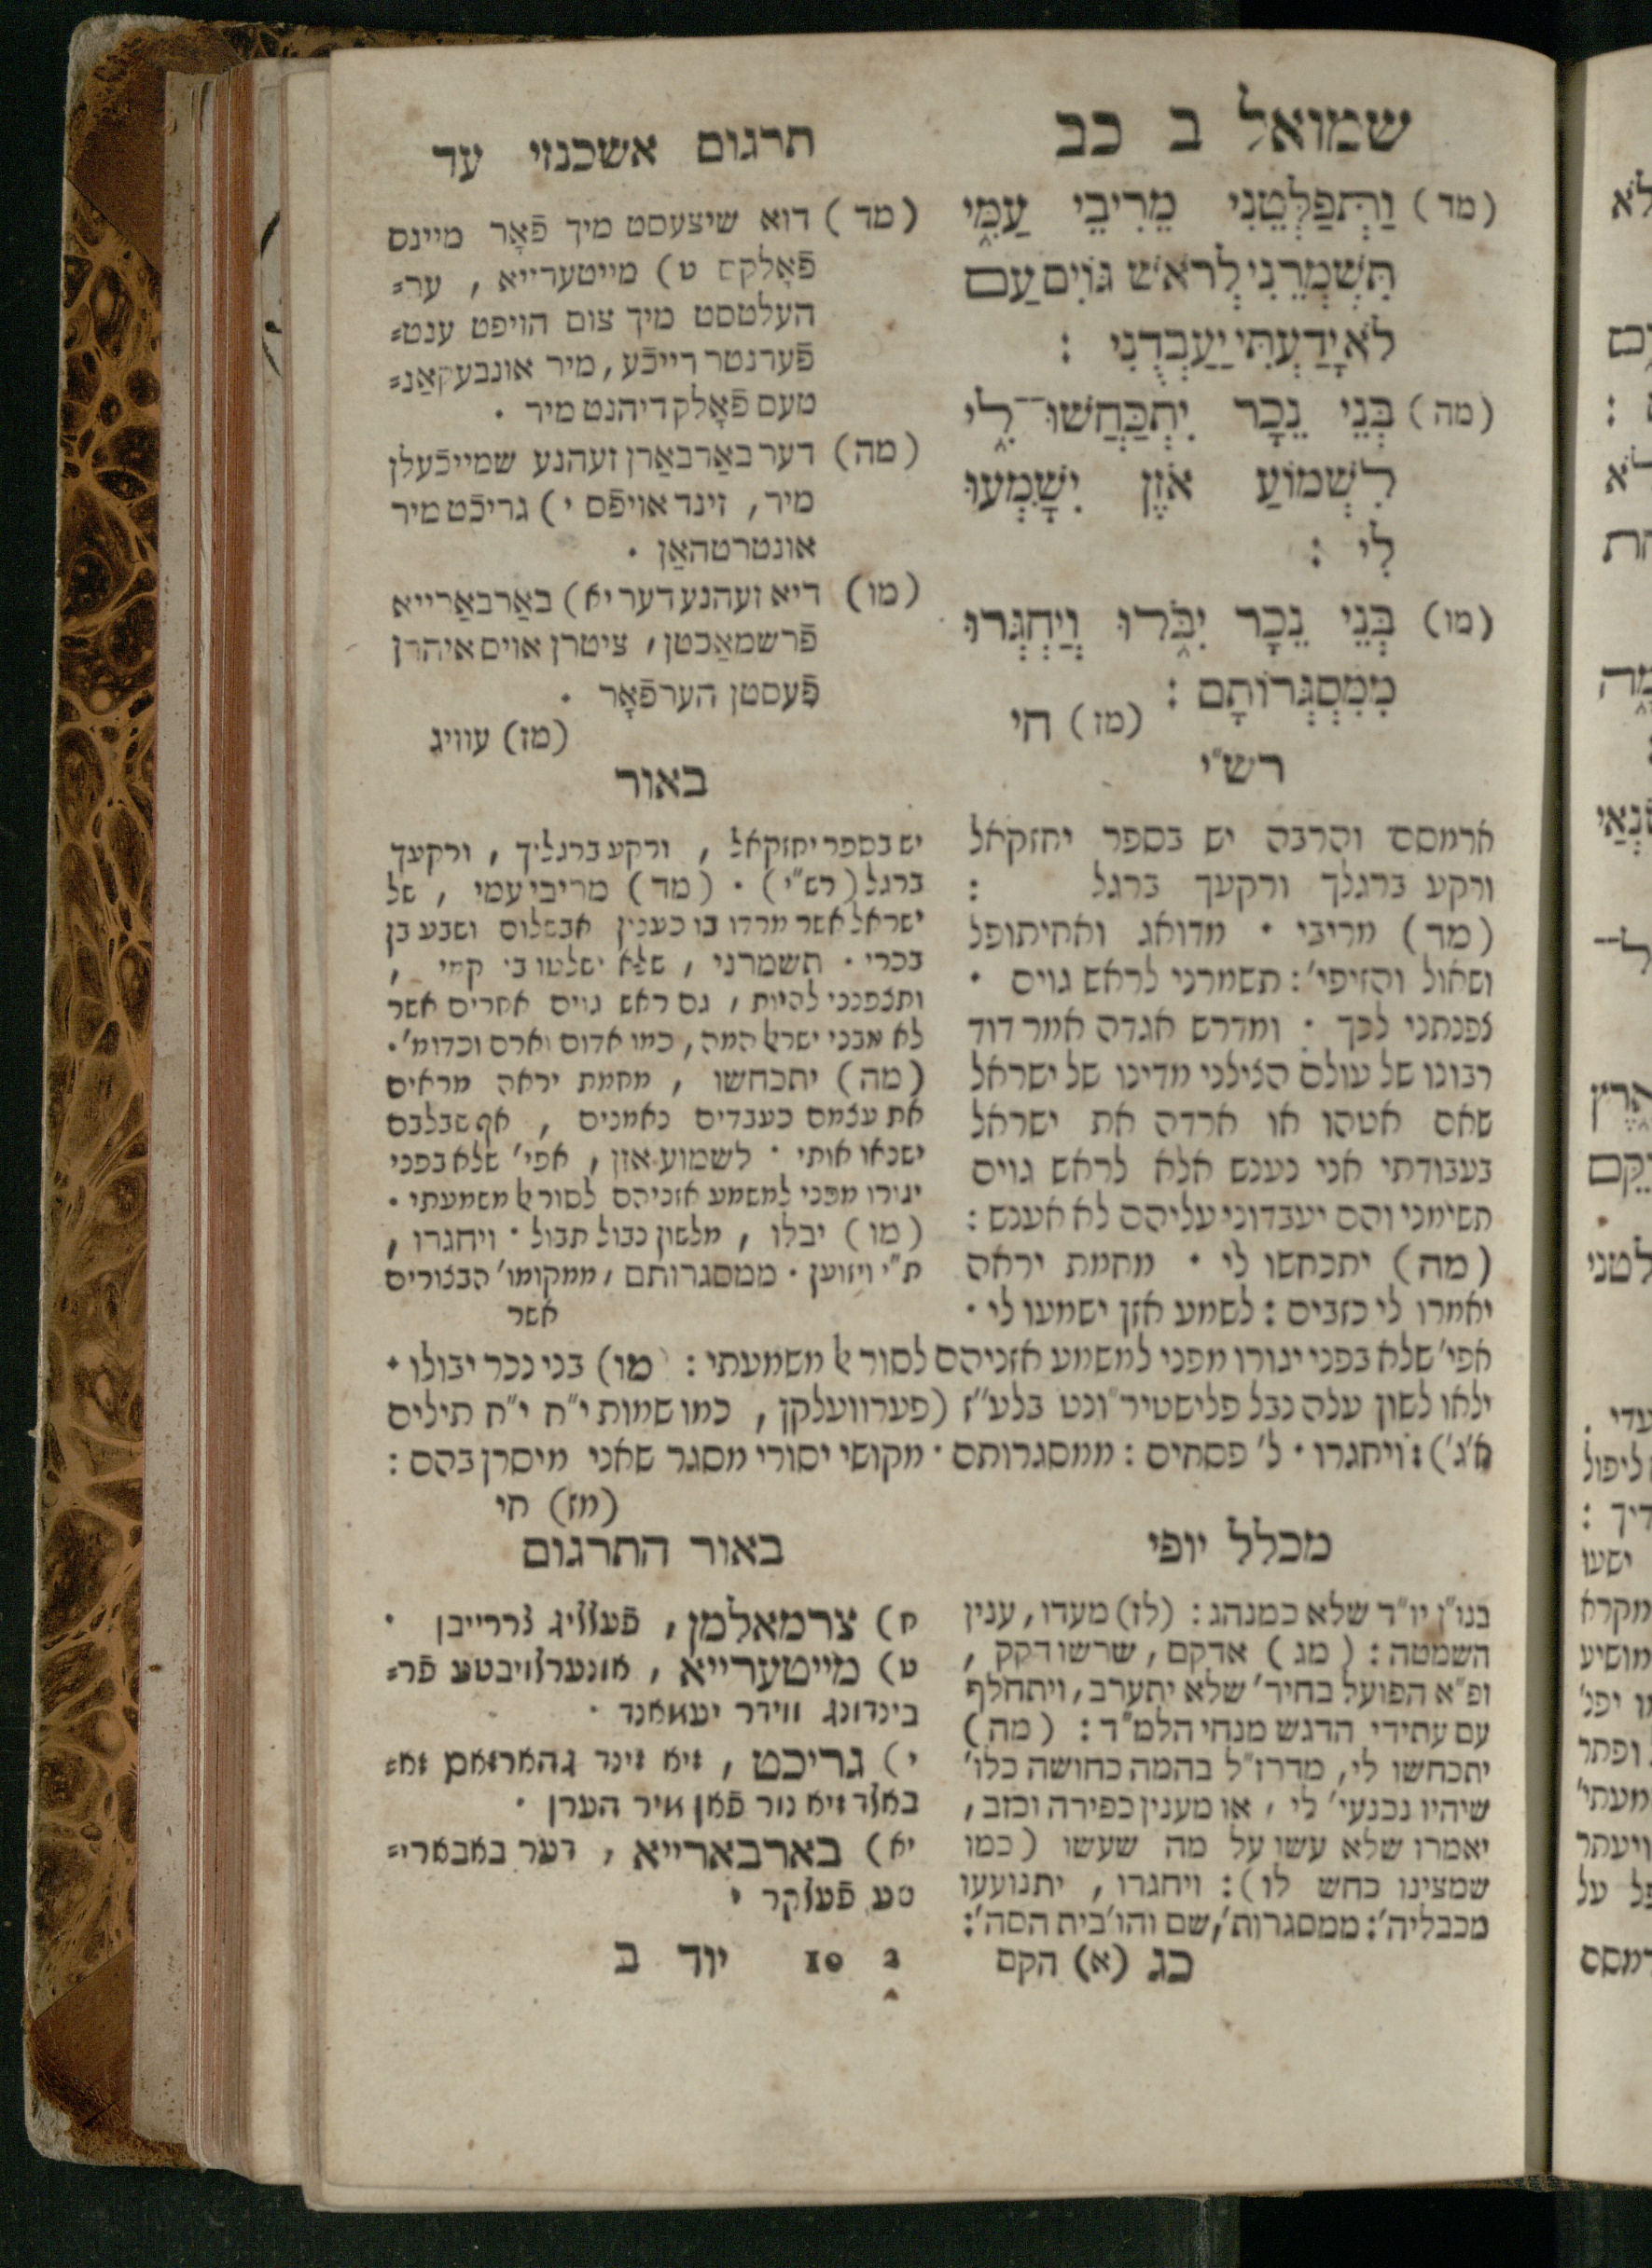 שמואל ב כב
(מד) וַתְּפַלְּטֵנִי מֵרִיבֵי עַמִּי
תִּשְׁמְרֵנִי לְרֹאשׁ גּוֹיִם עַם
לֹא יָדַעְתִּי יַעַבְדֻנִי :
(מה) בְּנֵי נֵכָר יִתְכַּחֲשׁוּ־לִי
לִשְׁמוֹעַ אֹזֶן יִשָּׁמְעוּ
לִי :
(מו) בְּנֵי נֵכָר יִבֹּלוּ וְיַחְגְּרוּ
מִמִּסְגְּרוֹתָם :
(מז) חי
תרגום אשכנזי עד
(מד) דוא שיצעסט מיך פֿאָר מיינס
פֿאָלקס ט) מייטערייא , ער=
העלטסט מיך צום הויפט ענט=
פֿערנטר רייכֿע, מיר אונבעקאַנ=
טעס פֿאָלק דיהנט מיר .
(מה) דער באַרבאַרן זעהנע שמייכֿעלן
מיר, זינד אויפֿס י) גריכֿט מיר
אונטרטהאַן .
(מו) דיא זעהנע דער יא) באַרבאַרייא
פֿרשמאַכטן, ציטרן אויס איהרן
פֿעסטן הערפֿאָר .
(מז) עוויג
רש"י
ארמסם והרבה יש בספר יחזקאל
ורקע ברגלך ורקעך ברגל :
(מד) מריבי . מדואג ואחיתופל
ושאול והזיפי': תשמרני לראש גוים .
צפנתני לכך . ומדרש אגדה אמר דוד
רבונו של עולם הצילני מדינו של ישראל
שאם אטהו או ארדה את ישראל
בעבודתי אני נענש אלא לראש גוים
תשימני והם יעבדוני עליהם לא אענש :
(מה) יתכחשו לי . מחמת יראה
יאמרו לי כזבים : לשמע אזן ישמעו לי .
באור
יש בספר יחזקאל , ורקע ברגליך , ורקעך
ברגל (רש"י) . (מד) מריבי עמי , של
ישראל אשר מרדו בו כענין אבשלום ושבע בן
בכרי . תשמרני , שלא ישלטו בי קמי ,
ותצפנני להיות , גם ראש גוים אחרים אשר
לא מבני ישראל המה, כמו אדום וארם וכדומ'.
(מה) יתכחשו , מחמת יראה מראים
את עצמם כעבדים נאמנים , אף שבלבם
ישנאו אותי . לשמוע אזן , אפי' שלא בפני
יגורו מפני למשמע אזניהם לסור אל משמעתי .
(מו) יבלו , מלשון נבול תבול . ויחגרו ,
ת"י ויזועון . ממסגרותם , ממקומו' הבצורים
אשר
אפי' שלא בפני יגורו מפני למשמע אזניהם לסור אל משמעתי : (מו) בני נכר יבולו .
ילאו לשון עלה נבל פלישטיר"ונט בלע"ז (פערוועלקן, כמו שמות י"ח י"ח תילים
א'ג'): ויחגרו . ל' פסחים : ממסגרותם . מקושי יסורי מסגר שאני מיסרן בהם :
(מז) חי
מכלל יופי
בנו"ן יו"ד שלא כמנהג : (לז) מעדו, ענין
השמטה : (מג) אדקם, שרשו דקק ,
ופ"א הפועל בחיר' שלא יתערב, ויתחלף
עם עתידי הדגש מנחי הלמ"ד : (מה)
יתכחשו לי, מדרז"ל בהמה כחושה כלו'
שיהיו נכנעי' לי , או מענין כפירה וכזב,
יאמרו שלא עשו על מה שעשו (כמו
שמצינו כחש לו) : ויחגרו , יתנועעו
מכבליה': ממסגרות', שם והו' בית הסה':
כג (א) הקם
באור התרגום
ח) צרמאלמן, פֿעלליג צררייבן .
ט) מייטערייא , אונערלויבטע פֿר=
בינדונג ווידר יעמאנד .
י) גריכט , זיא זינד געהארזאם זא=
באלד זיא נור פֿאן מיר הערן .
יא) בארבארייא , דער באבארי=
טע פֿעלקר .
2 10 יוד ב